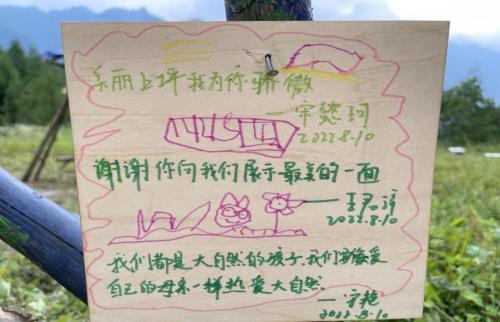 美丽上坪我为你骄傲
2022.8.10
谢谢你向我们展示最美的一面
2022.8.10
我们都是大自然的孩子.我们要像爱
自己的母亲一样热爱大自然.
2022.8.10